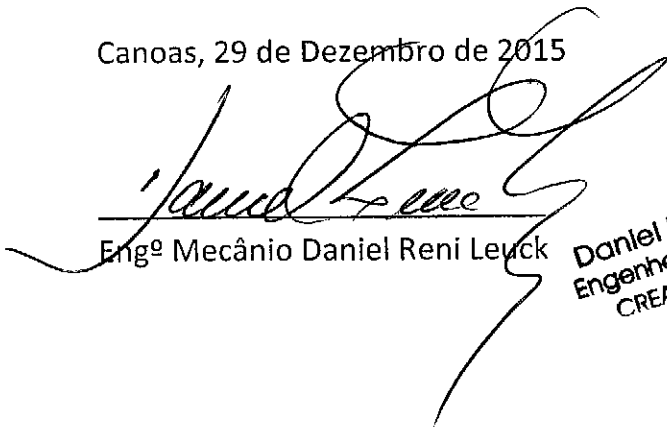 Canoas, 29 de Dezembro de 2015
Engº Mecânio Daniel Reni Leuck
Daniel
Engenhe
CREA